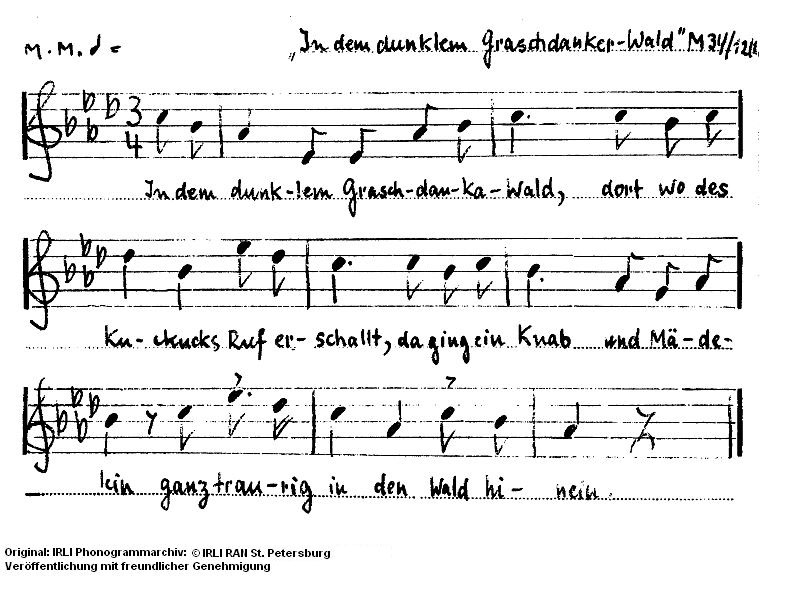 M.M. ♩ = „In dem dunklem Graschdanker-Wald" M 34/
3
4
In dem dunk-lem Grasch-dan-ka-Wald, dort wo des
Ku-ckucks Ruf er-schallt, da ging ein Knab und Mä-de-
lein ganz trau-rig in den Wald hi-nein.
Original: IRLI Phonogrammarchiv: © IRLI RAN St. Petersburg
Veröffentlichung mit freundlicher Genehmigung